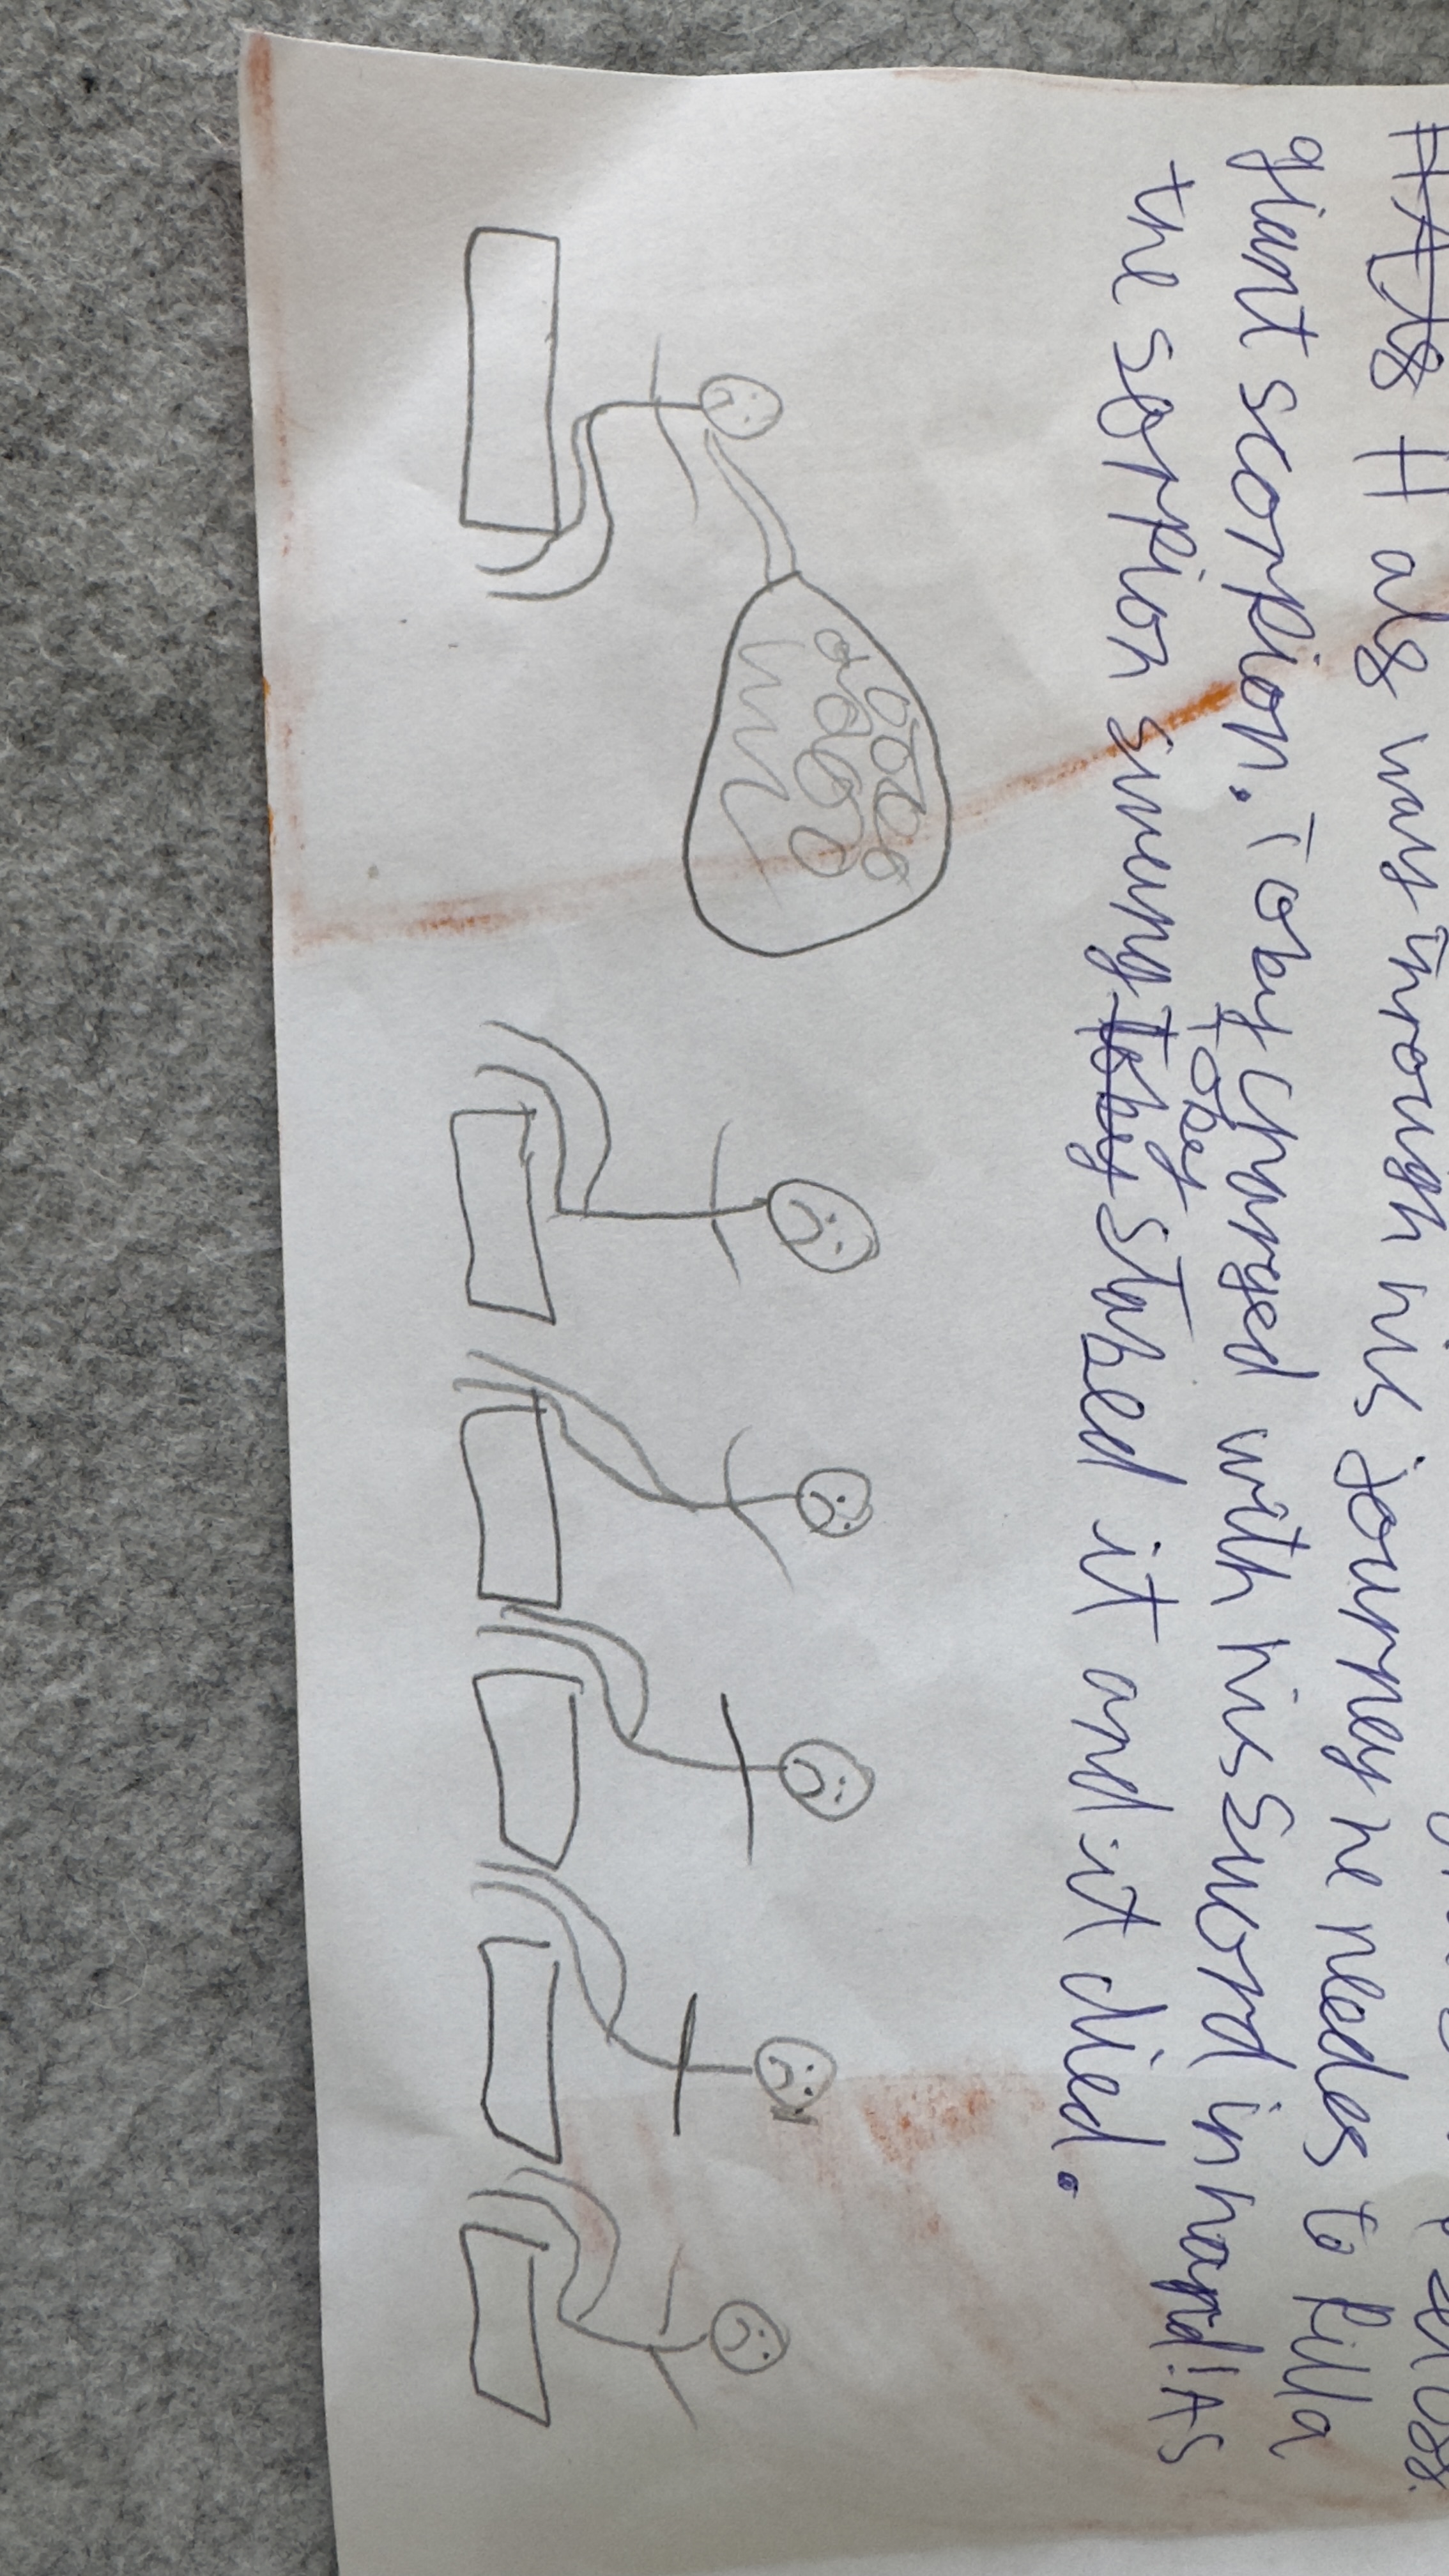 H als way through his journey he needes to killa
giant scorpion. Toby charged with his sword in hand! As
Toby
the sorpion sweung stabed it and it died.